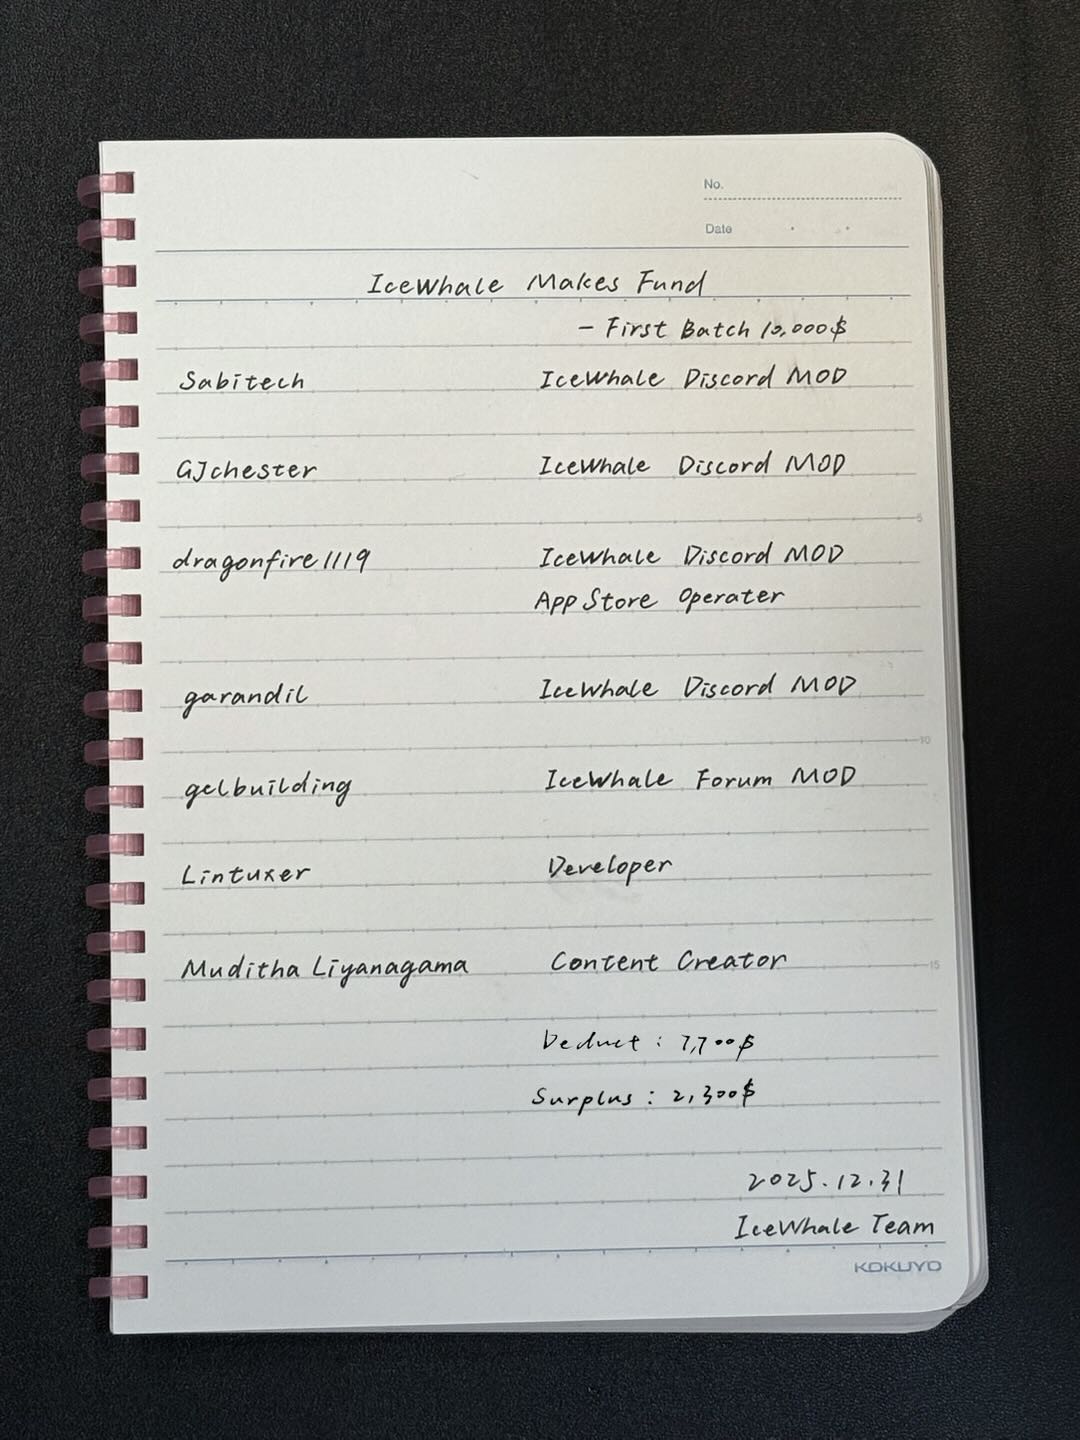 No.
Date
IceWhale Makes Fund
- First Batch 10,000$
Sabitech IceWhale Discord MOD
GJchester IceWhale Discord MOD
5
dragonfire1119 IceWhale Discord MOD
App Store Operater
garandil IceWhale Discord MOD
10
gelbuilding IceWhale Forum MOD
Lintuxer Developer
Muditha Liyanagama Content Creator
15
Deduct : 7,700$
Surplus : 2,300$
2025.12.31
IceWhale Team
KOKUYO